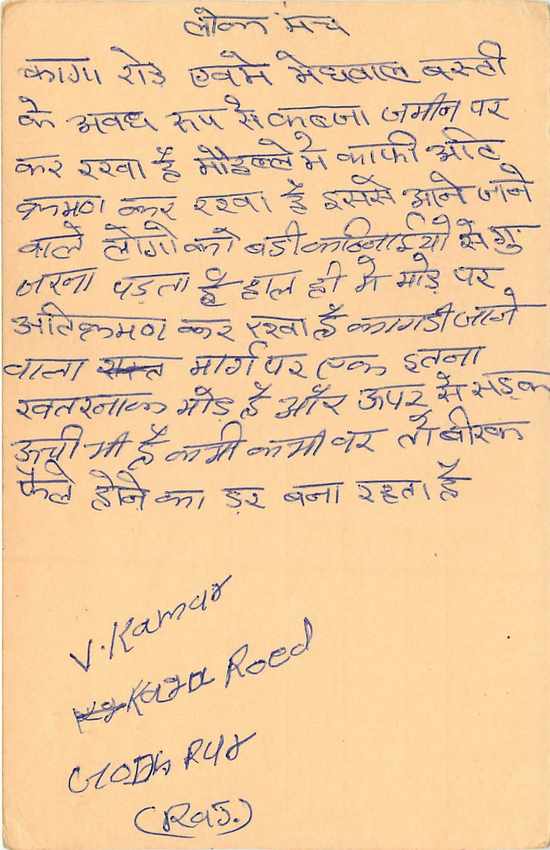 लोक मंच
कागा रोड़ एवम मेघवाल बस्ती
के अवध रूप से कब्जा जमीन पर
कर रखा है मौहल्ले मे काफी अति
क्रमण कर रखा है इससे आने जाने
वाले लोगो को बडी कठिनाईयो से गु
जरना पड़ता है हाल ही मे मोड़ पर
अतिक्रमण कर रखा है कागडी जाने
वाला मार्ग पर एक इतना
खतरनाक मोड़ है और ऊपर से सड़क
ऊची भी है कभी कभी वर तो ब्रेक
फैल होने का डर बना रहता है
V. Kamar
Kaga Roed
GODh PUr
(Raj.)